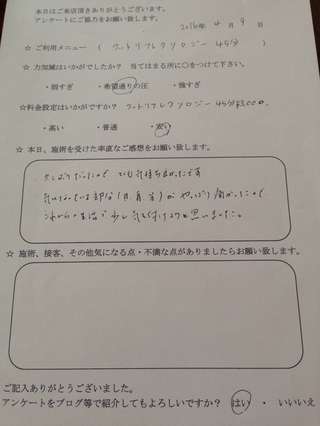 本日はご来店頂きありがとうございます。
アンケートにご協力をお願い致します。
2016年 4月 9日
☆ ご利用メニュー ( フットリフレクソロジー 45分 )
☆ 力加減はいかがでしたか? 当てはまる所に○をつけて下さい。
・弱すぎ ・希望通りの圧 ・強すぎ
☆料金設定はいかがですか? フットリフレクソロジー 45分¥3,000.
・高い ・普通 ・安い
☆ 本日、施術を受けた率直なご感想をお願い致します。
久しぶりだったので とても気持ち良かったです
気になっている部分(目、肩 等)が やっぱり 痛かったので
これからの生活で少し気を付けようと思いました。
☆ 施術、接客、その他気になる点・不満な点がありましたらお願い致します。
ご記入ありがとうございました。
アンケートをブログ等で紹介してもよろしいですか? はい ・ いいえ